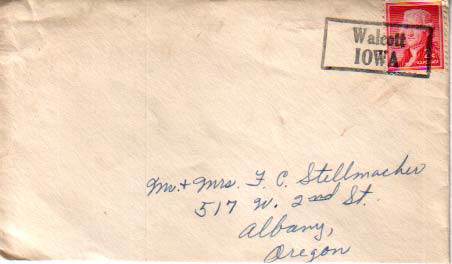 Walcott
IOWA
Mr. & Mrs. F. C. Stellmacher
517 W. 2nd St.
Albany,
Oregon